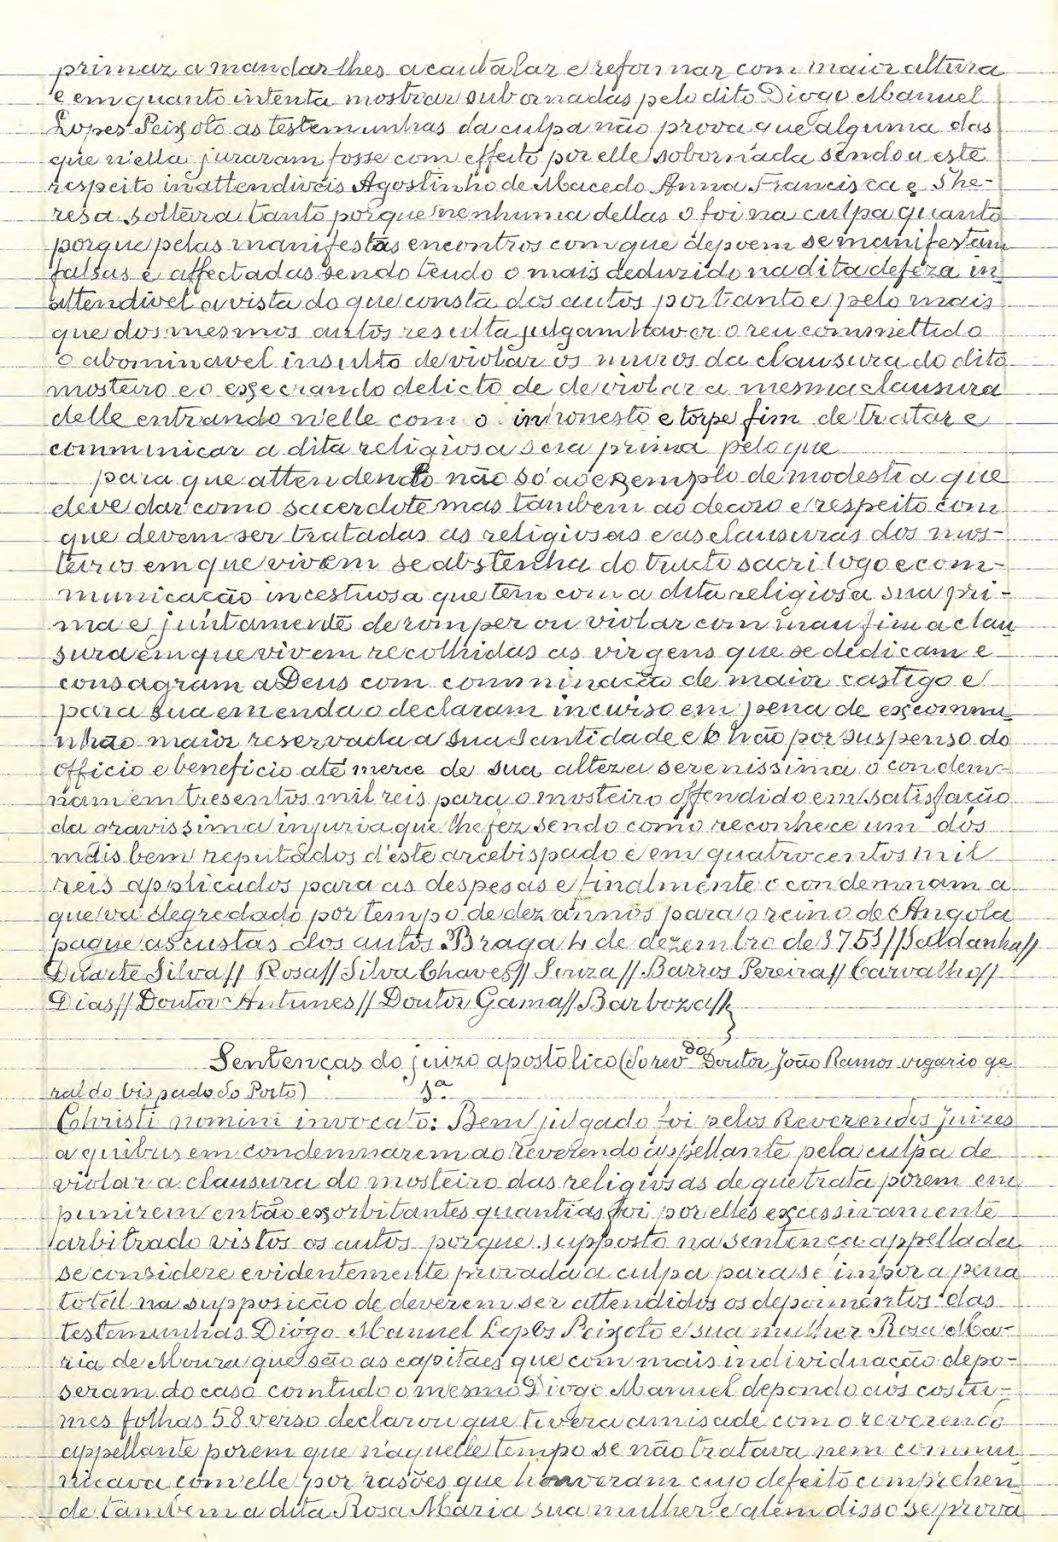 primaz a mandar lhes acautalar e reformar com maior altura
e em quanto intenta mostrar subornadas pelo dito Diogo Manuel
Lopes Peixoto as testemunhas da culpa não prova que alguma das
que n'ella juraram fosse com effeito por elle sobornada sendo a este
respeito inattendiveis Agostinho de Macedo Anna Francisca e The-
resa solteira tanto porque nenhuma dellas o foi na culpa quanto
porque pelas manifestas encontros com que depoem se manifestam
falsas e affectadas sendo tendo o mais deduzido na dita defeza in
attendivel a vista do que consta dos autos portanto e pelo mais
que dos mesmos autos resulta julgam haver o reu commettido
o abominavel insulto de violar os muros da clausura do dito
mosteiro e o exsecrando delicto de de violar a mesma clausura
delle entrando n'elle com o inhonesto e torpe fim de tratar e
communicar a dita religiosa sera prima pelo que
para que attendendo não só ao exemplo de modestia que
deve dar como sacerdote mas tambem ao decoro e respeito com
que devem ser tratadas as religiosas e as clausuras dos mos-
teiros em que vivem se abstenha do tracto sacrilogo e com-
municação incestuosa que tem com a dita religiosa sua pri-
ma e juntamente de romper ou violar com mau fim a clau
sura em que vivem recolhidas as virgens que se dedicam e
consagram a Deus com comminação de maior castigo e
para sua emenda o declaram incurso em pena de excommu
nhão maior reservada a sua Santidade e o hão por suspenso do
officio e beneficio até merce de sua alteza serenissima o condem-
nam em tresentos mil reis para o mosteiro offendido em satisfação
da gravissima injuria que lhe fez sendo como reconhece um dos
mais bem reputados d'este arcebispado e em quatrocentos mil
reis applicados para as despesas e finalmente o condemnam a
que vá degredado por tempo de dez annos para o reino de Angola
pague as custas dos autos. Braga 4 de dezembro de 1751//Saldanha//
Duarte Silva// Rosa// Silva Chaves// Souza// Barros Pereira// Carvalho//
Dias// Doutor Antunes// Doutor Gama// Barboza//
Sentenças do juizo apostolico (do revdo Doutor João Ramos vigario ge
ral do bispado do Porto) 1ª
Christi nomini invocato: Bem julgado foi pelos Reverendos Juizes
a quibus em condemnarem ao reverendo appellante pela culpa de
violar a clausura do mosteiro das religiosas de que trata porem em
punirem então exorbitantes quantias foi por elles excessivamente
arbitrado vistos os autos porque supposto na sentença appellada
se considere evidentemente provada a culpa para se impor a pena
total na supposição de deverem ser attendidos os depoimentos das
testemunhas Diogo Manuel Lopes Peixoto e sua mulher Rosa Ma-
ria de Moura que são as capitaes que com mais individuação depo-
seram do caso comtudo o mesmo Diogo Manuel depondo aos costu-
mes folhas 58 verso declarou que tivera amisade com o reverendo
appellante porem que n'aquelle tempo se não tratava nem commu
nicava com elle por rasões que houveram cujo defeito comprehen
de tambem a dita Rosa Maria sua mulher e alem disso se prova